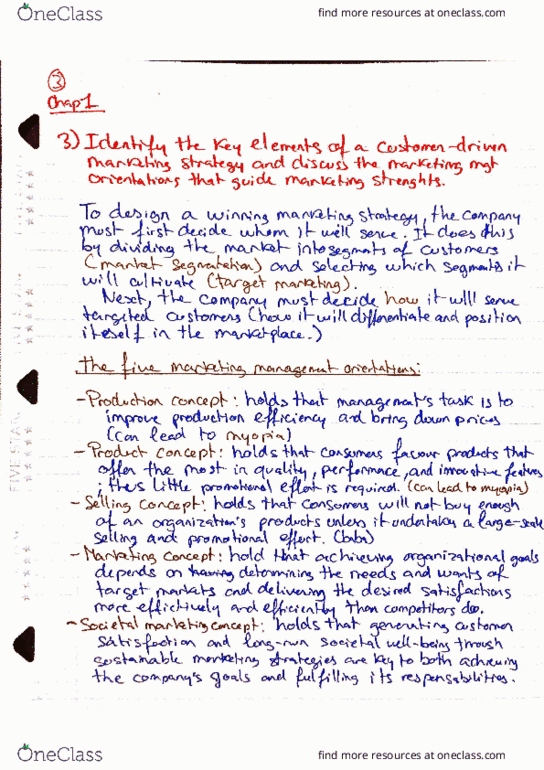 OneClass
find more resources at oneclass.com
3
Chap 1
3) Identify the key elements of a customer-driven
marketing strategy and discuss the marketing mgt
orientations that guide marketing strenghts.
To design a winning marketing strategy, the company
must first decide whom it will serve. It does this
by dividing the market into segments of customers
(market segmentation) and selecting which segments it
will cultivate (target marketing).
Next, the company must decide how it will serve
targeted customers (how it will differentiate and position
itself in the marketplace.)
The five marketing management orientations:
- Production concept: holds that management's task is to
improve production efficiency and bring down prices
(can lead to myopia)
- Product concept: holds that consumers favour products that
offer the most in quality, performance, and innovative features
; thus little promotional effort is required. (can lead to myopia)
- Selling concept: holds that consumers will not buy enough
of an organization's products unless it undertakes a large-scale
selling and promotional effort.
- Marketing concept: hold that achieving organizational goals
depends on determining the needs and wants of
target markets and delivering the desired satisfactions
more effictively and efficiently than competitors do.
- Societal marketing concept: holds that generating customer
satisfaction and long-run societal well-being through
sustainable marketing strategies are key to both achieving
the company's goals and fulfilling its responsabilities.
FIVE STAR
OneClass
find more resources at oneclass.com